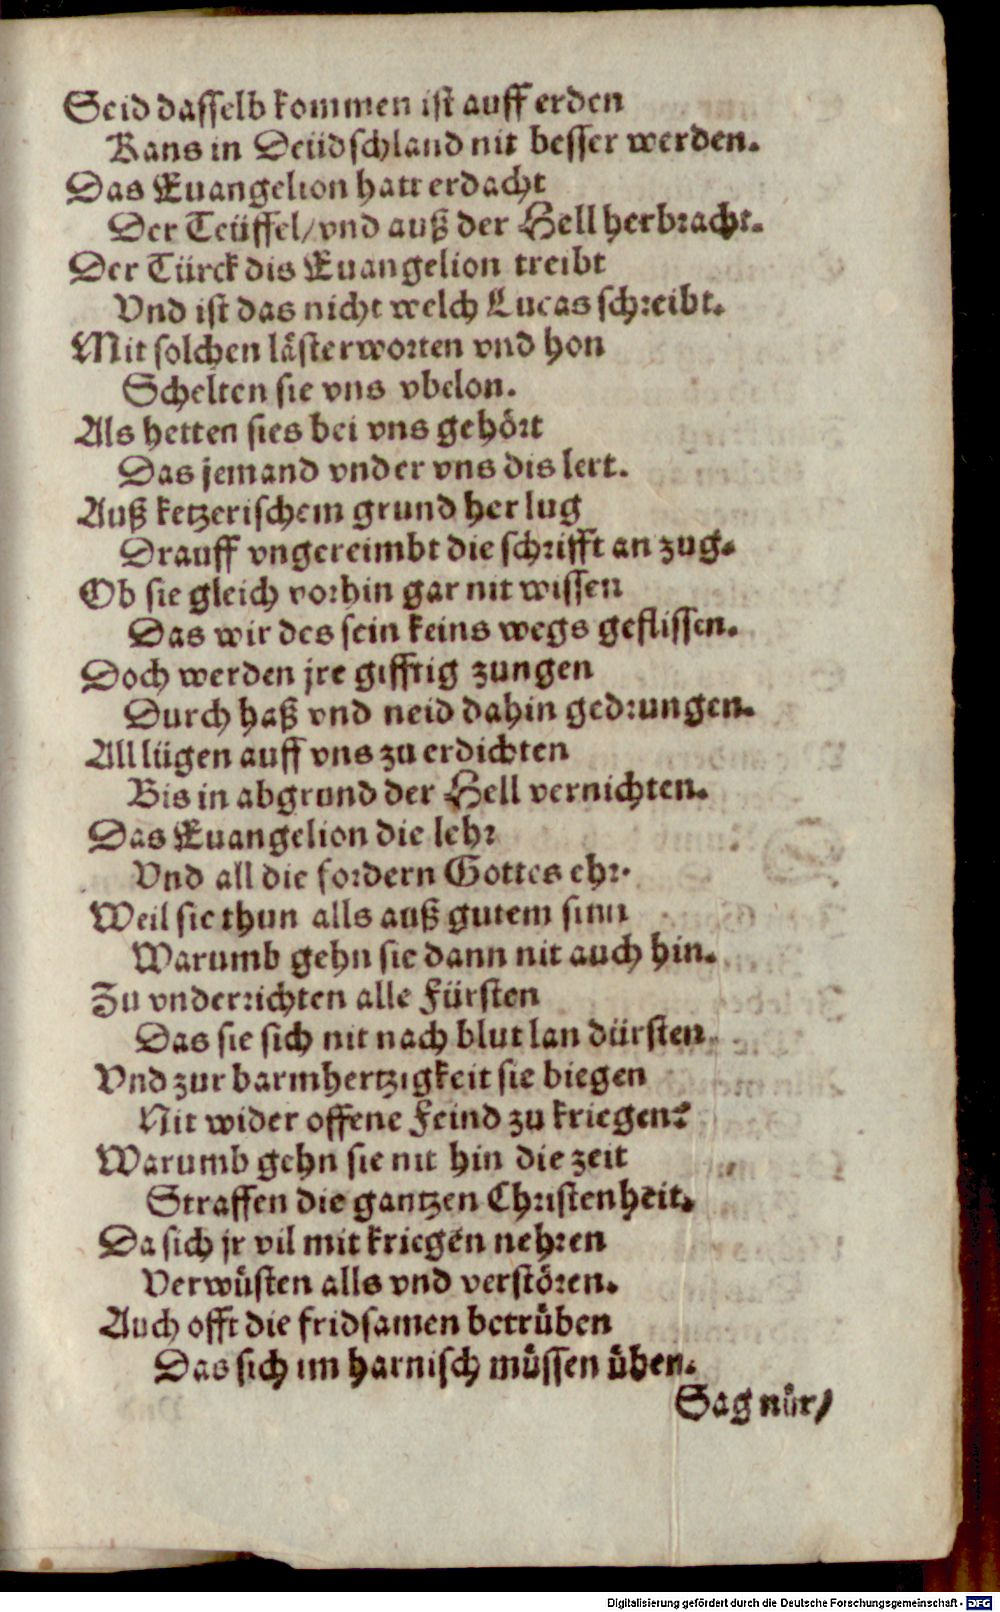 Seid dasselb kommen ist auff erden
Kans in Deüdschland nit besser werden.
Das Euangelion hatt erdacht
Der Teüffel/ vnd auß der Hell herbracht.
Der Türck dis Euangelion treibt
Vnd ist das nicht welch Lucas schreibt.
Mit solchen lästerworten vnd hon
Schelten sie vns vbelon.
Als hetten sies bei vns gehört
Das jemand vnder vns dis lert.
Auß ketzerischem grund her lug
Drauff vngereimbt die schrifft an zug.
Ob sie gleich vorhin gar nit wissen
Das wir des sein keins wegs geflissen.
Doch werden jre gifftig zungen
Durch haß vnd neid dahin gedrungen.
All lügen auff vns zu erdichten
Bis in abgrund der Hell vernichten.
Das Euangelion die lehr
Vnd all die fordern Gottes ehr.
Weil sie thun alls auß gutem sinn
Warumb gehn sie dann nit auch hin.
Zu vnderrichten alle Fürsten
Das sie sich nit nach blut lan dürsten.
Vnd zur barmhertzigkeit sie biegen
Nit wider offene Feind zu kriegen?
Warumb gehn sie nit hin die zeit
Straffen die gantzen Christenheit.
Da sich jr vil mit kriegen nehren
Verwüsten alls vnd verstören.
Auch offt die fridsamen betrüben
Das sich im harnisch müssen üben.
Sag nůr/
Digitalisierung gefördert durch die Deutsche Forschungsgemeinschaft - DFG